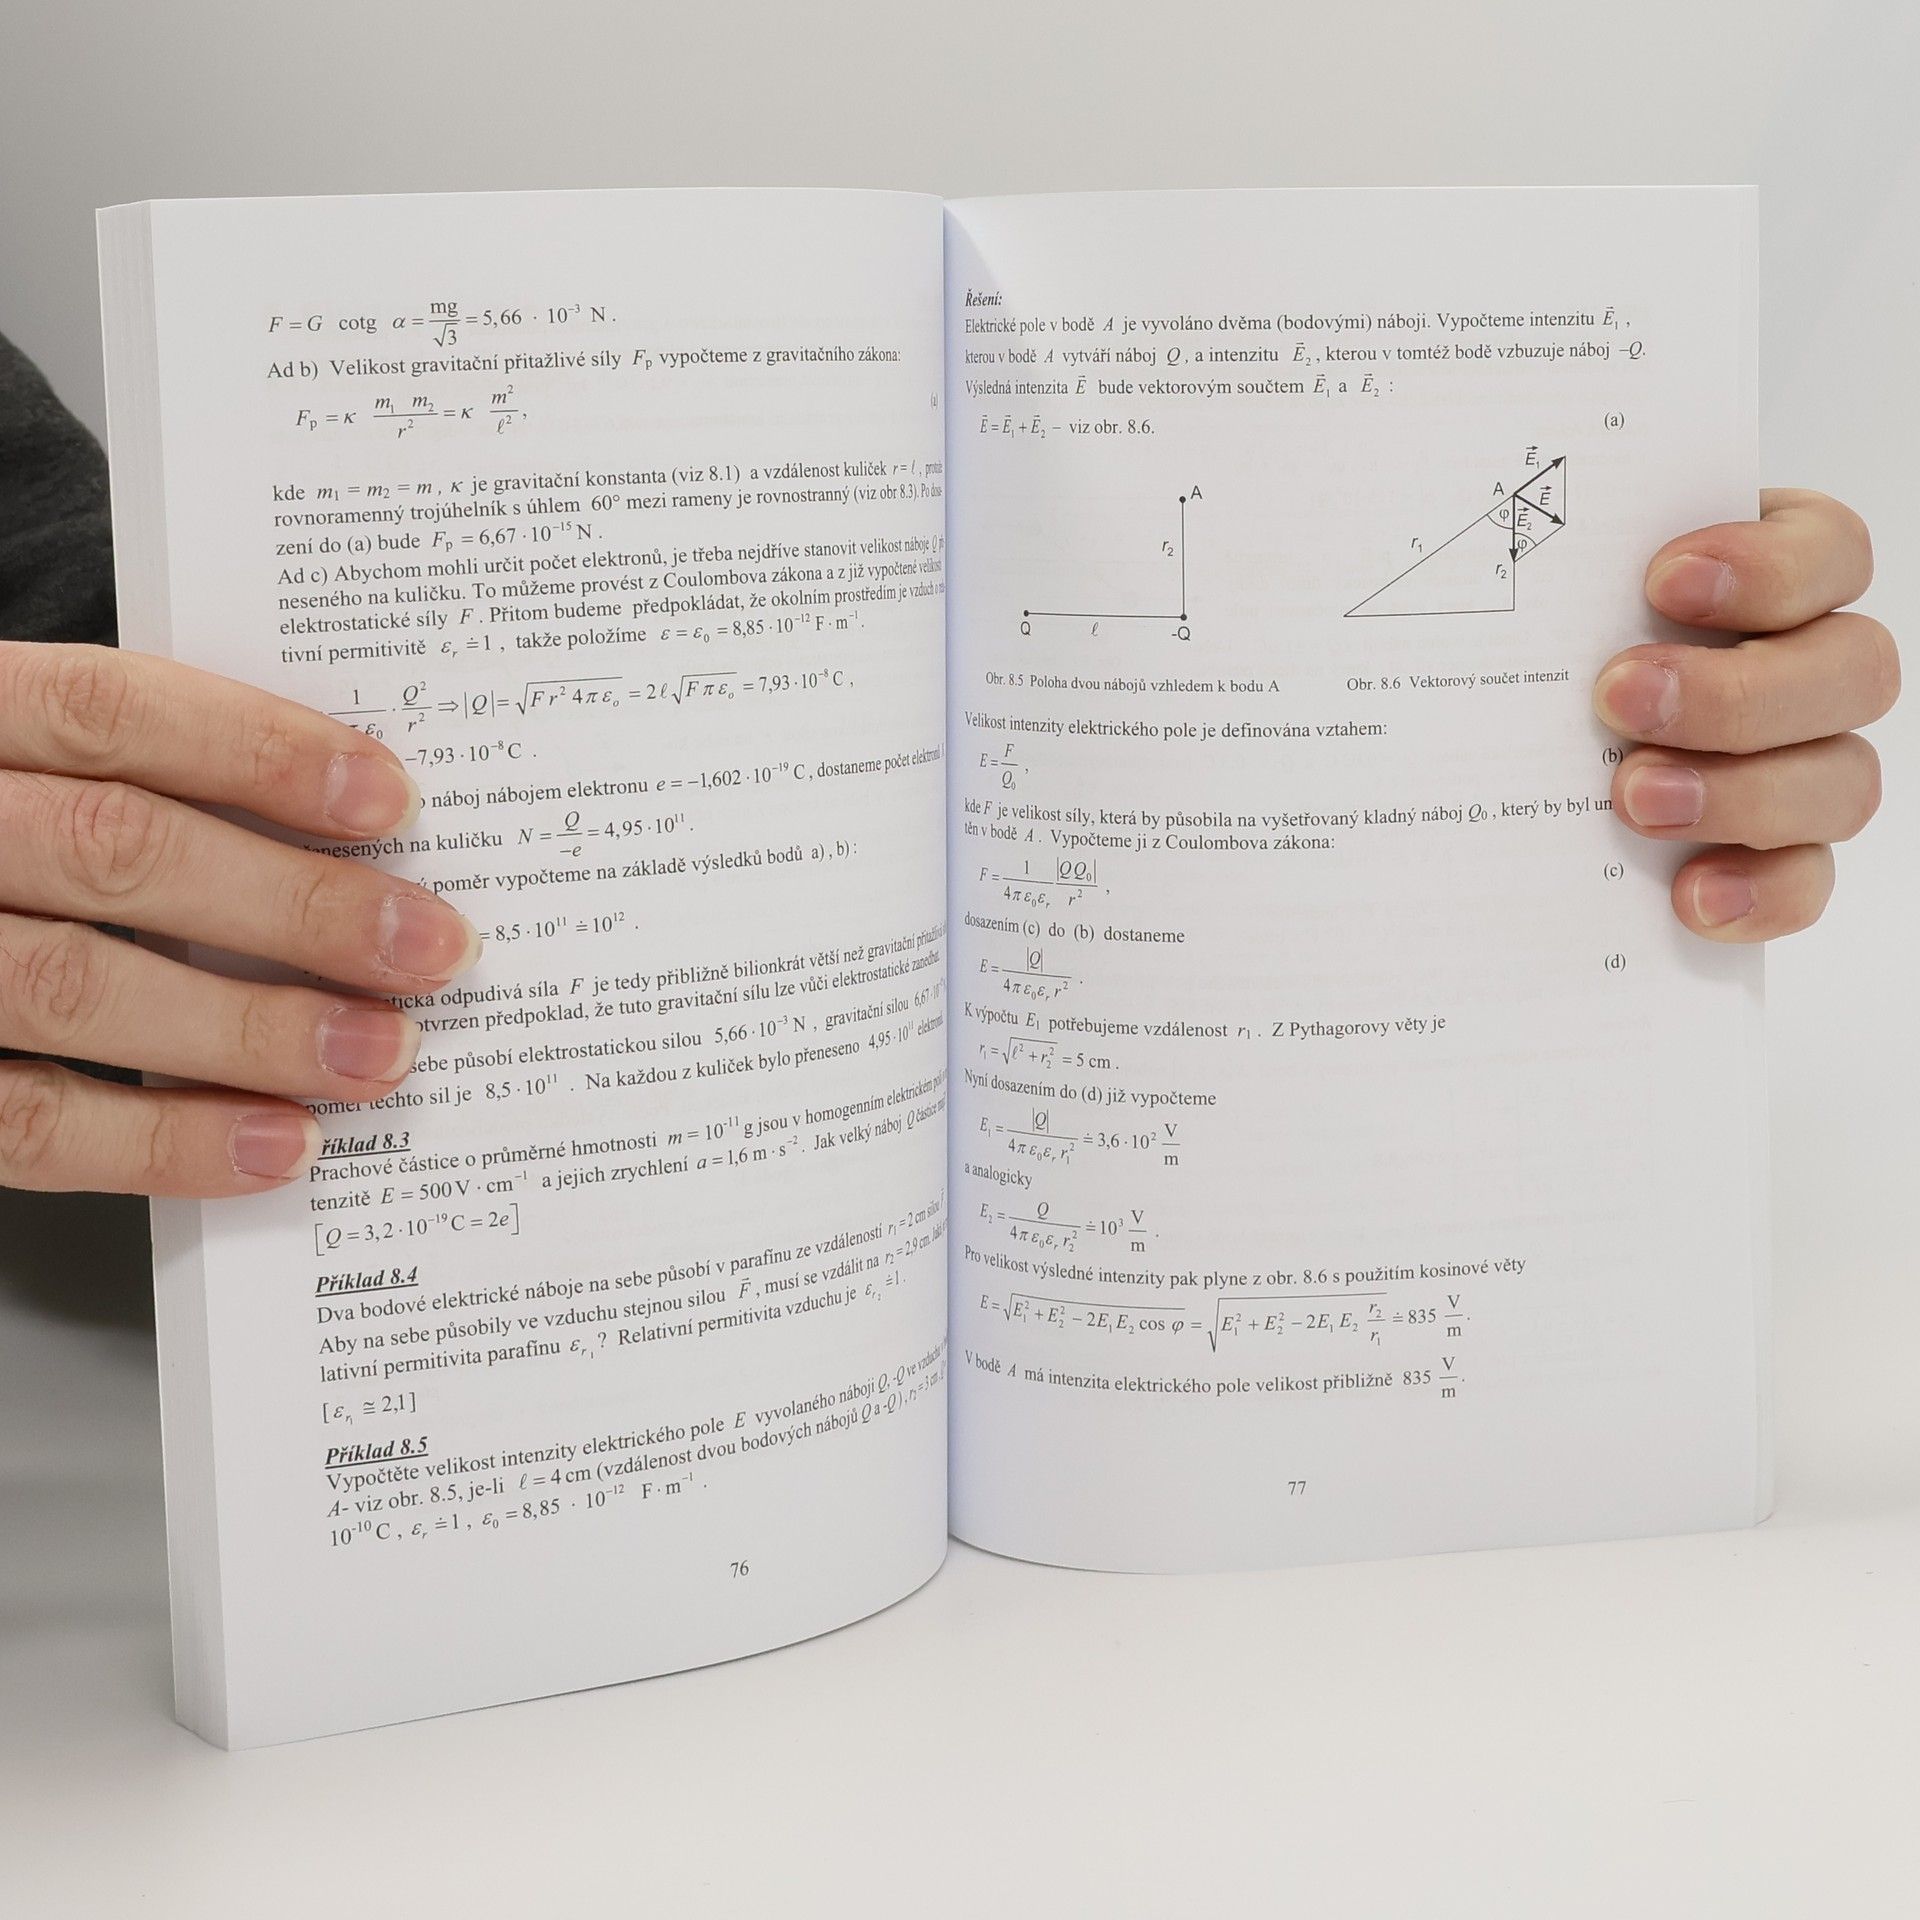 F = G cotg α = mg/√3 = 5,66 · 10⁻³ N .
Ad b) Velikost gravitační přitažlivé síly Fₚ vypočteme z gravitačního zákona:
Fₚ = κ m₁ m₂/r² = κ m²/ℓ² ,
kde m₁ = m₂ = m , κ je gravitační konstanta (viz 8.1) a vzdálenost kuliček r = ℓ ,
rovnoramenný trojúhelník s úhlem 60° mezi rameny je rovnostranný (viz obr 8.3). Po
zení do (a) bude Fₚ = 6,67 · 10⁻¹⁵ N .
Ad c) Abychom mohli určit počet elektronů, je třeba nejdříve stanovit velikost náboje Q
neseného na kuličku. To můžeme provést z Coulombova zákona a z již vypočtené velikosti
elektrostatické síly F . Přitom budeme předpokládat, že okolním prostředím je vzduch o
tivní permitivitě εᵣ ≐ 1 , takže položíme ε = ε₀ = 8,85 · 10⁻¹² F · m⁻¹ .
1/ ε₀ · Q²/r² ⇒ |Q| = √(F r² 4 π ε₀) = 2 ℓ √(F π ε₀) = 7,93 · 10⁻⁸ C ,
−7,93 · 10⁻⁸ C .
náboj nábojem elektronu e = −1,602 · 10⁻¹⁹ C , dostaneme počet elektronů
na kuličku N = Q/−e = 4,95 · 10¹¹ .
poměr vypočteme na základě výsledků bodů a) , b) :
= 8,5 · 10¹¹ ≐ 10¹² .
odpudivá síla F je tedy přibližně bilionkrát větší než gravitační
předpoklad, že tuto gravitační sílu lze vůči elektrostatické zanedbat.
sebe působí elektrostatickou silou 5,66 · 10⁻³ N , gravitační silou 6,67 · 10
poměr těchto sil je 8,5 · 10¹¹ . Na každou z kuliček bylo přeneseno 4,95 · 10¹¹ elektronů
říklad 8.3
Prachové částice o průměrné hmotnosti m = 10⁻¹¹ g jsou v homogenním elektrickém poli
tenzitě E = 500 V · cm⁻¹ a jejich zrychlení a = 1,6 m · s⁻² . Jak velký náboj Q částice
[Q = 3,2 · 10⁻¹⁹ C = 2e]
Příklad 8.4
Dva bodové elektrické náboje na sebe působí v parafínu ze vzdálenosti r₁ = 2 cm silou F⃗
Aby na sebe působily ve vzduchu stejnou silou F⃗ , musí se vzdálit na r₂ = 2,9 cm.
lativní permitivita parafínu εᵣ₁ ? Relativní permitivita vzduchu je εᵣ₂ ≐ 1 .
[ εᵣ₁ ≅ 2,1 ]
Příklad 8.5
Vypočtěte velikost intenzity elektrického pole E vyvolaného náboji Q, -Q ve vzduchu
A- viz obr. 8.5, je-li ℓ = 4 cm (vzdálenost dvou bodových nábojů Q a -Q ) , r₂ = 3 cm,
10⁻¹⁰ C , εᵣ ≐ 1 , ε₀ = 8,85 · 10⁻¹² F · m⁻¹ .
76
Řešení:
Elektrické pole v bodě A je vyvoláno dvěma (bodovými) náboji. Vypočteme intenzitu E⃗₁ ,
kterou v bodě A vytváří náboj Q , a intenzitu E⃗₂ , kterou v tomtéž bodě vzbuzuje náboj −Q.
Výsledná intenzita E⃗ bude vektorovým součtem E⃗₁ a E⃗₂ :
E⃗ = E⃗₁ + E⃗₂ − viz obr. 8.6. (a)
A
r₂
Q ℓ -Q
E⃗₁
A E⃗
φ E⃗₂
φ
r₁
r₂
Obr. 8.5 Poloha dvou nábojů vzhledem k bodu A
Obr. 8.6 Vektorový součet intenzit
Velikost intenzity elektrického pole je definována vztahem:
E = F/Q₀ , (b)
kde F je velikost síly, která by působila na vyšetřovaný kladný náboj Q₀ , který by byl um
těn v bodě A . Vypočteme ji z Coulombova zákona:
F = 1/(4 π ε₀ εᵣ) |Q Q₀|/r² , (c)
dosazením (c) do (b) dostaneme
E = |Q|/(4 π ε₀ εᵣ r²) . (d)
K výpočtu E₁ potřebujeme vzdálenost r₁ . Z Pythagorovy věty je
r₁ = √(ℓ² + r₂²) = 5 cm .
Nyní dosazením do (d) již vypočteme
E₁ = |Q|/(4 π ε₀ εᵣ r₁²) ≐ 3,6 · 10² V/m
a analogicky
E₂ = Q/(4 π ε₀ εᵣ r₂²) ≐ 10³ V/m .
Pro velikost výsledné intenzity pak plyne z obr. 8.6 s použitím kosinové věty
E = √(E₁² + E₂² − 2E₁ E₂ cos φ) = √(E₁² + E₂² − 2E₁ E₂ r₂/r₁) ≐ 835 V/m .
V bodě A má intenzita elektrického pole velikost přibližně 835 V/m .
77